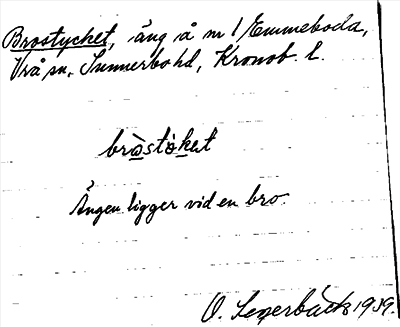 Brostycket, äng å nr 1 Emmeboda,
Vrå sn, Sunnerbo hd, Kronob. l.
bròstòket
Ängen ligger vid en bro.
O. Segerbäck 1939.